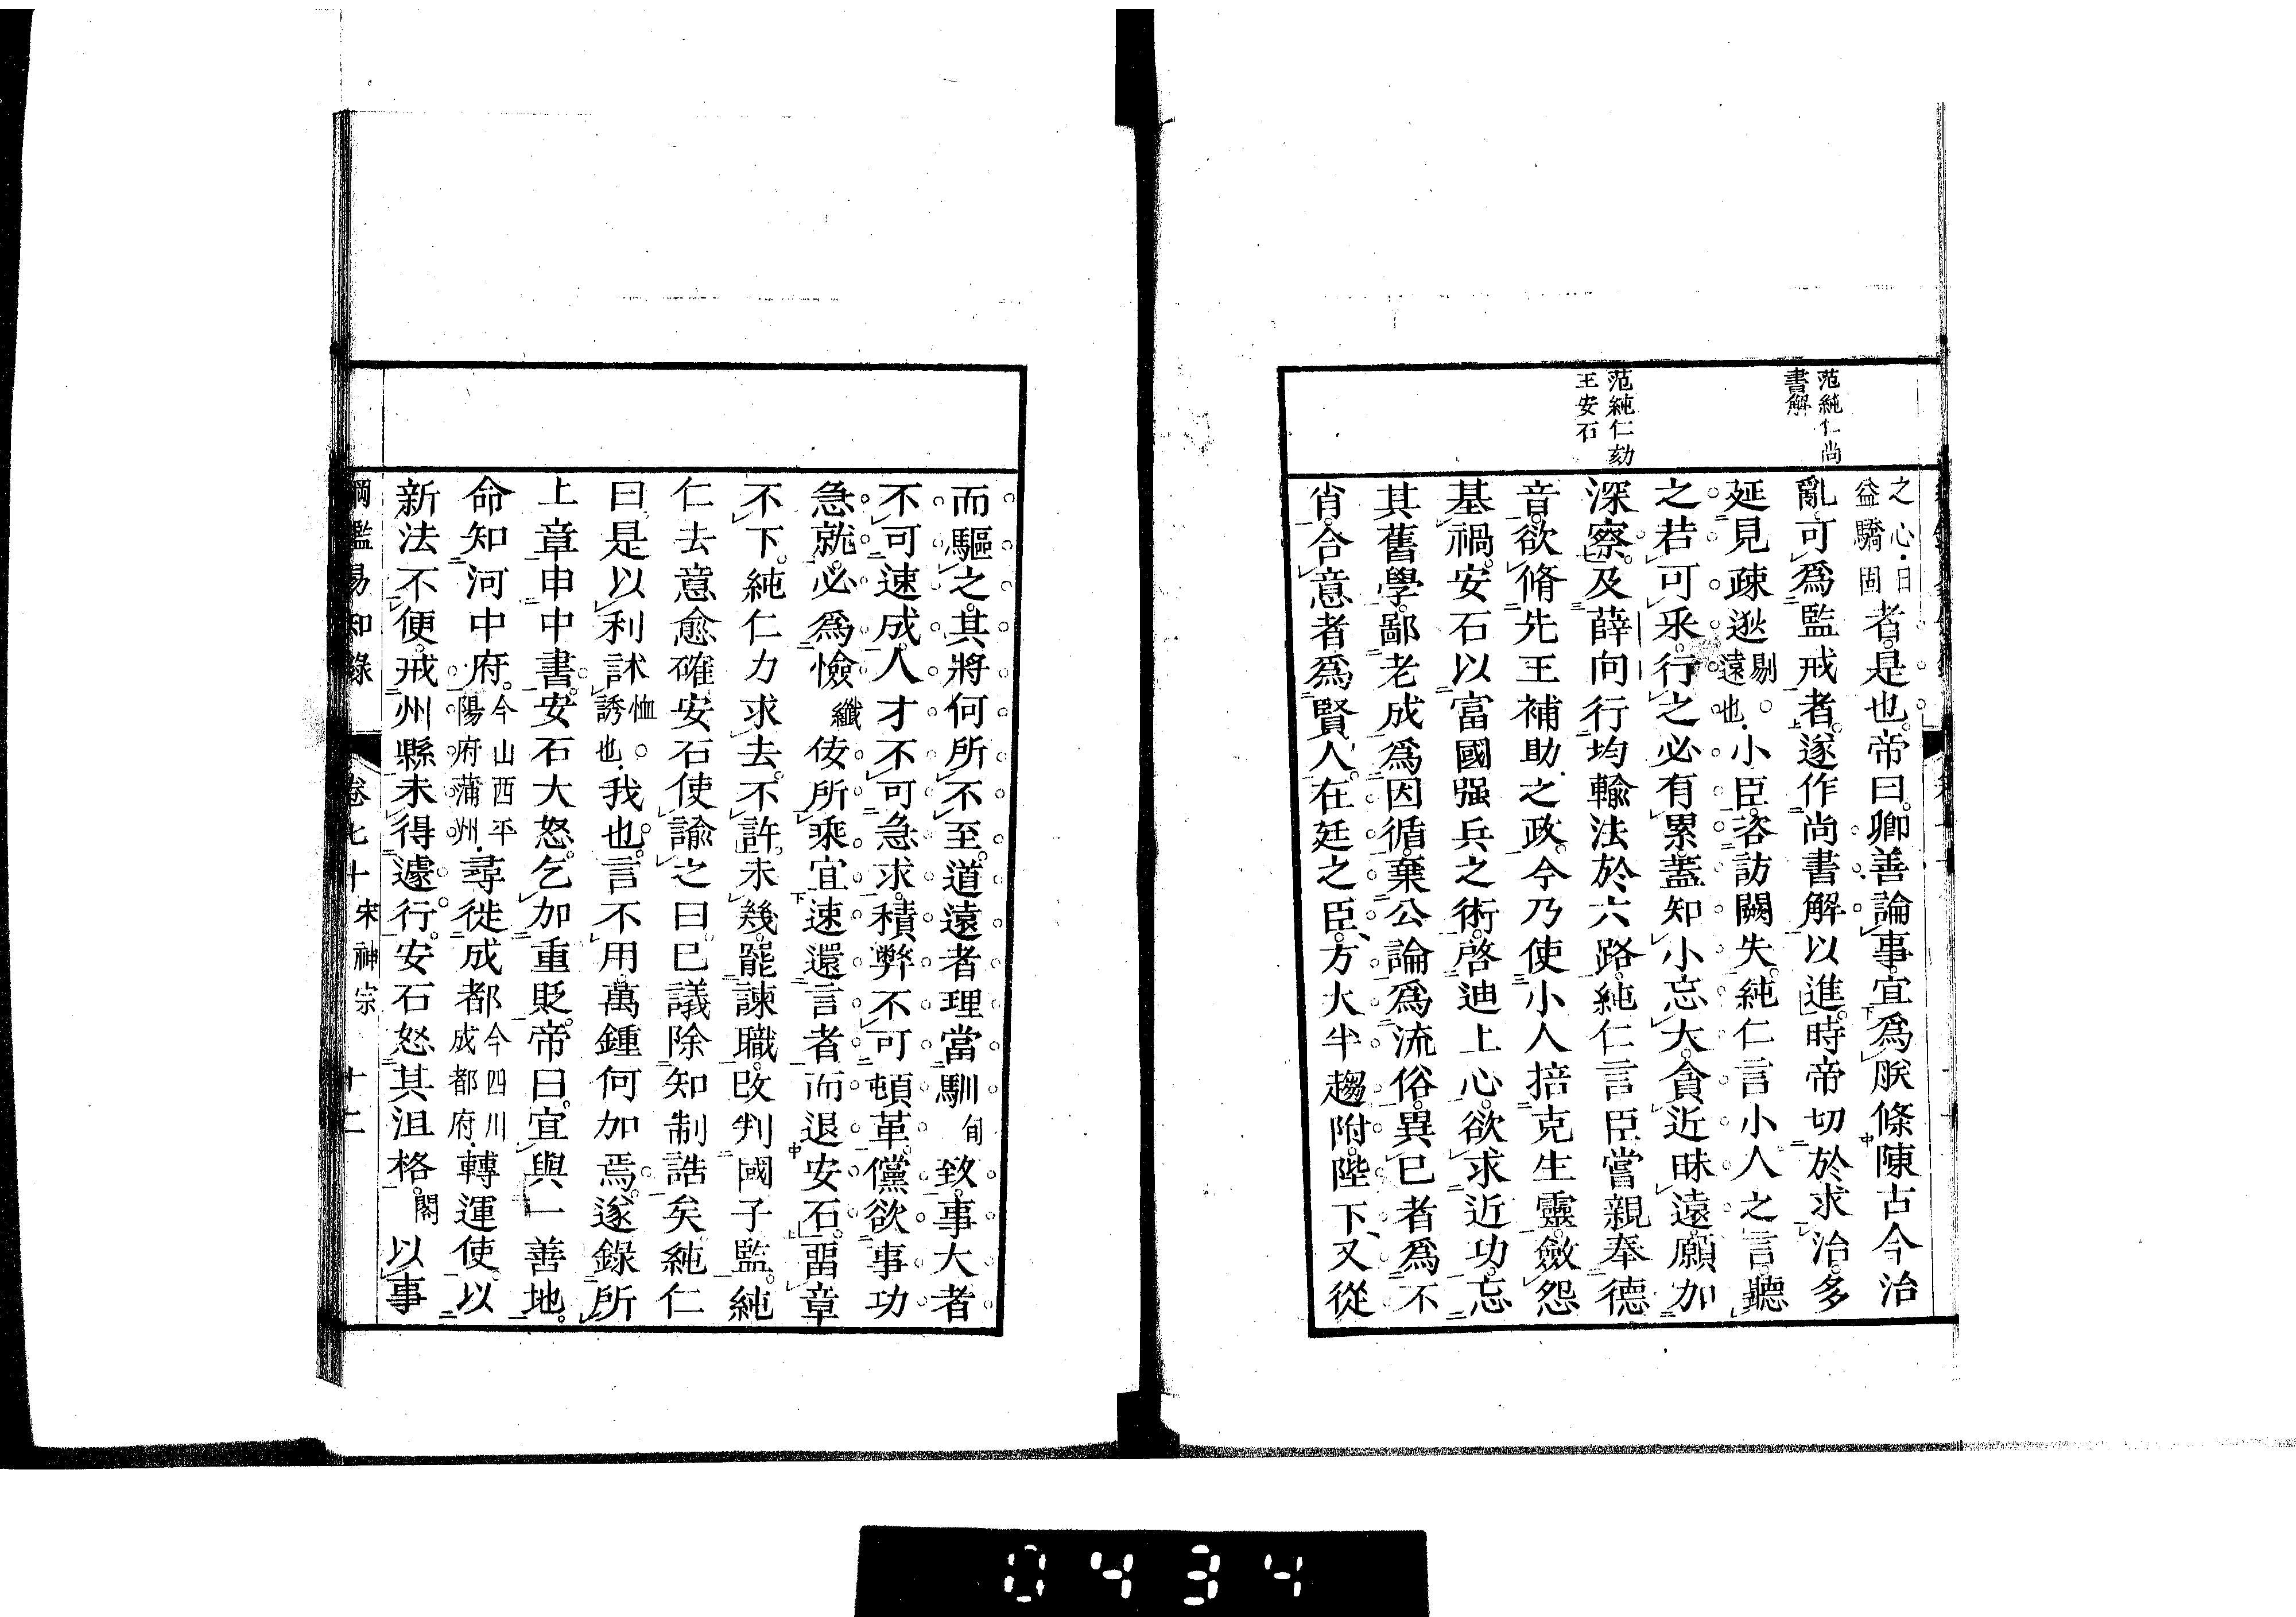 范純仁尚
書解
范純仁劾
王安石
之心日
益驕固者是也帝曰卿善論事宜爲朕條陳古今治
亂可爲監戒者遂作尚書解以進時帝切於求治多
延見疎逖剔遠也小臣咨訪闕失純仁言小人之言聽
之若可采行之必有累蓋知小忘大貪近昧遠願加
深察及薛向行均輸法於六路純仁言臣嘗親奉德
音欲脩先王補助之政今乃使小人掊克生靈斂怨
基禍安石以富國强兵之術啓迪上心欲求近功忘
其舊學鄙老成爲因循棄公論爲流俗異已者爲不
肖合意者爲賢人在廷之臣方大半趨附陛下又從
而驅之其將何所不至道遠者理當馴旬致事大者
不可速成人才不可急求積弊不可頓革儻欲事功
急就必爲憸纖佞所乘宜速還言者而退安石畱章
不下純仁力求去不許未幾罷諫職改判國子監純
仁去意愈確安石使諭之曰已議除知制誥矣純仁
曰是以利訹恤誘也我也言不用萬鍾何加焉遂錄所
上章申中書安石大怒乞加重貶帝曰宜與一善地
命知河中府今山西平陽府蒲州尋徙成都今四川成都府轉運使以
新法不便戒州縣未得遽行安石怒其沮格閣以事
綱鑑易知錄 卷七十 宋神宗 十二
0434